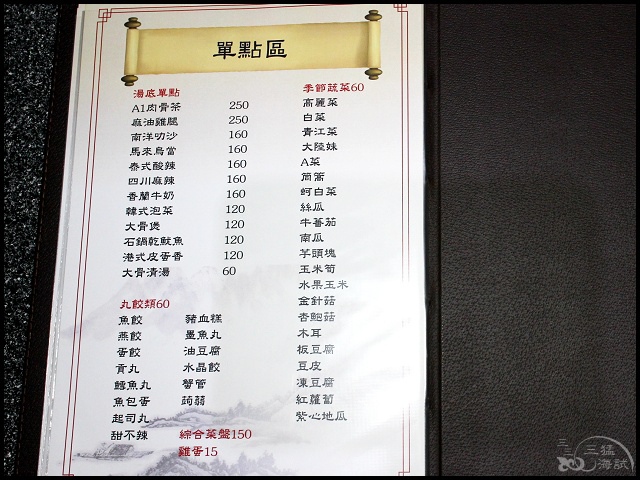 單點區
湯底單點
A1肉骨茶 250
麻油雞腿 250
南洋叻沙 160
馬來烏當 160
泰式酸辣 160
四川麻辣 160
香蘭牛奶 160
韓式泡菜 120
大骨煲 120
石鍋乾魷魚 120
港式皮蛋香 120
大骨清湯 60
丸餃類60
魚餃 豬血糕
燕餃 墨魚丸
蛋餃 油豆腐
貢丸 水晶餃
鱈魚丸 蟹管
魚包蛋 蒟蒻
起司丸
甜不辣
綜合菜盤150
雞蛋15
季節蔬菜60
高麗菜
白菜
青江菜
大陸妹
A菜
茼蒿
蚵白菜
絲瓜
牛蕃茄
南瓜
芋頭塊
玉米筍
水果玉米
金針菇
杏鮑菇
木耳
板豆腐
豆皮
凍豆腐
紅蘿蔔
紫心地瓜
三猛
海試